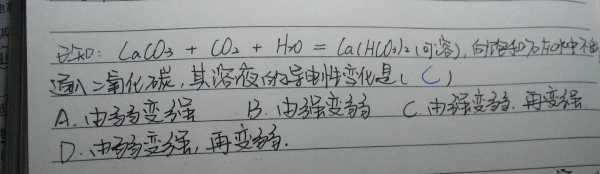 已知: CaCO3 + CO2 + H2O = Ca(HCO3)2(可溶), 向饱和石灰水中不断
通入二氧化碳, 其溶液的导电性变化是( C )
A. 由弱变强 B. 由强变弱 C. 由强变弱. 再变强
D. 由弱变强, 再变弱.